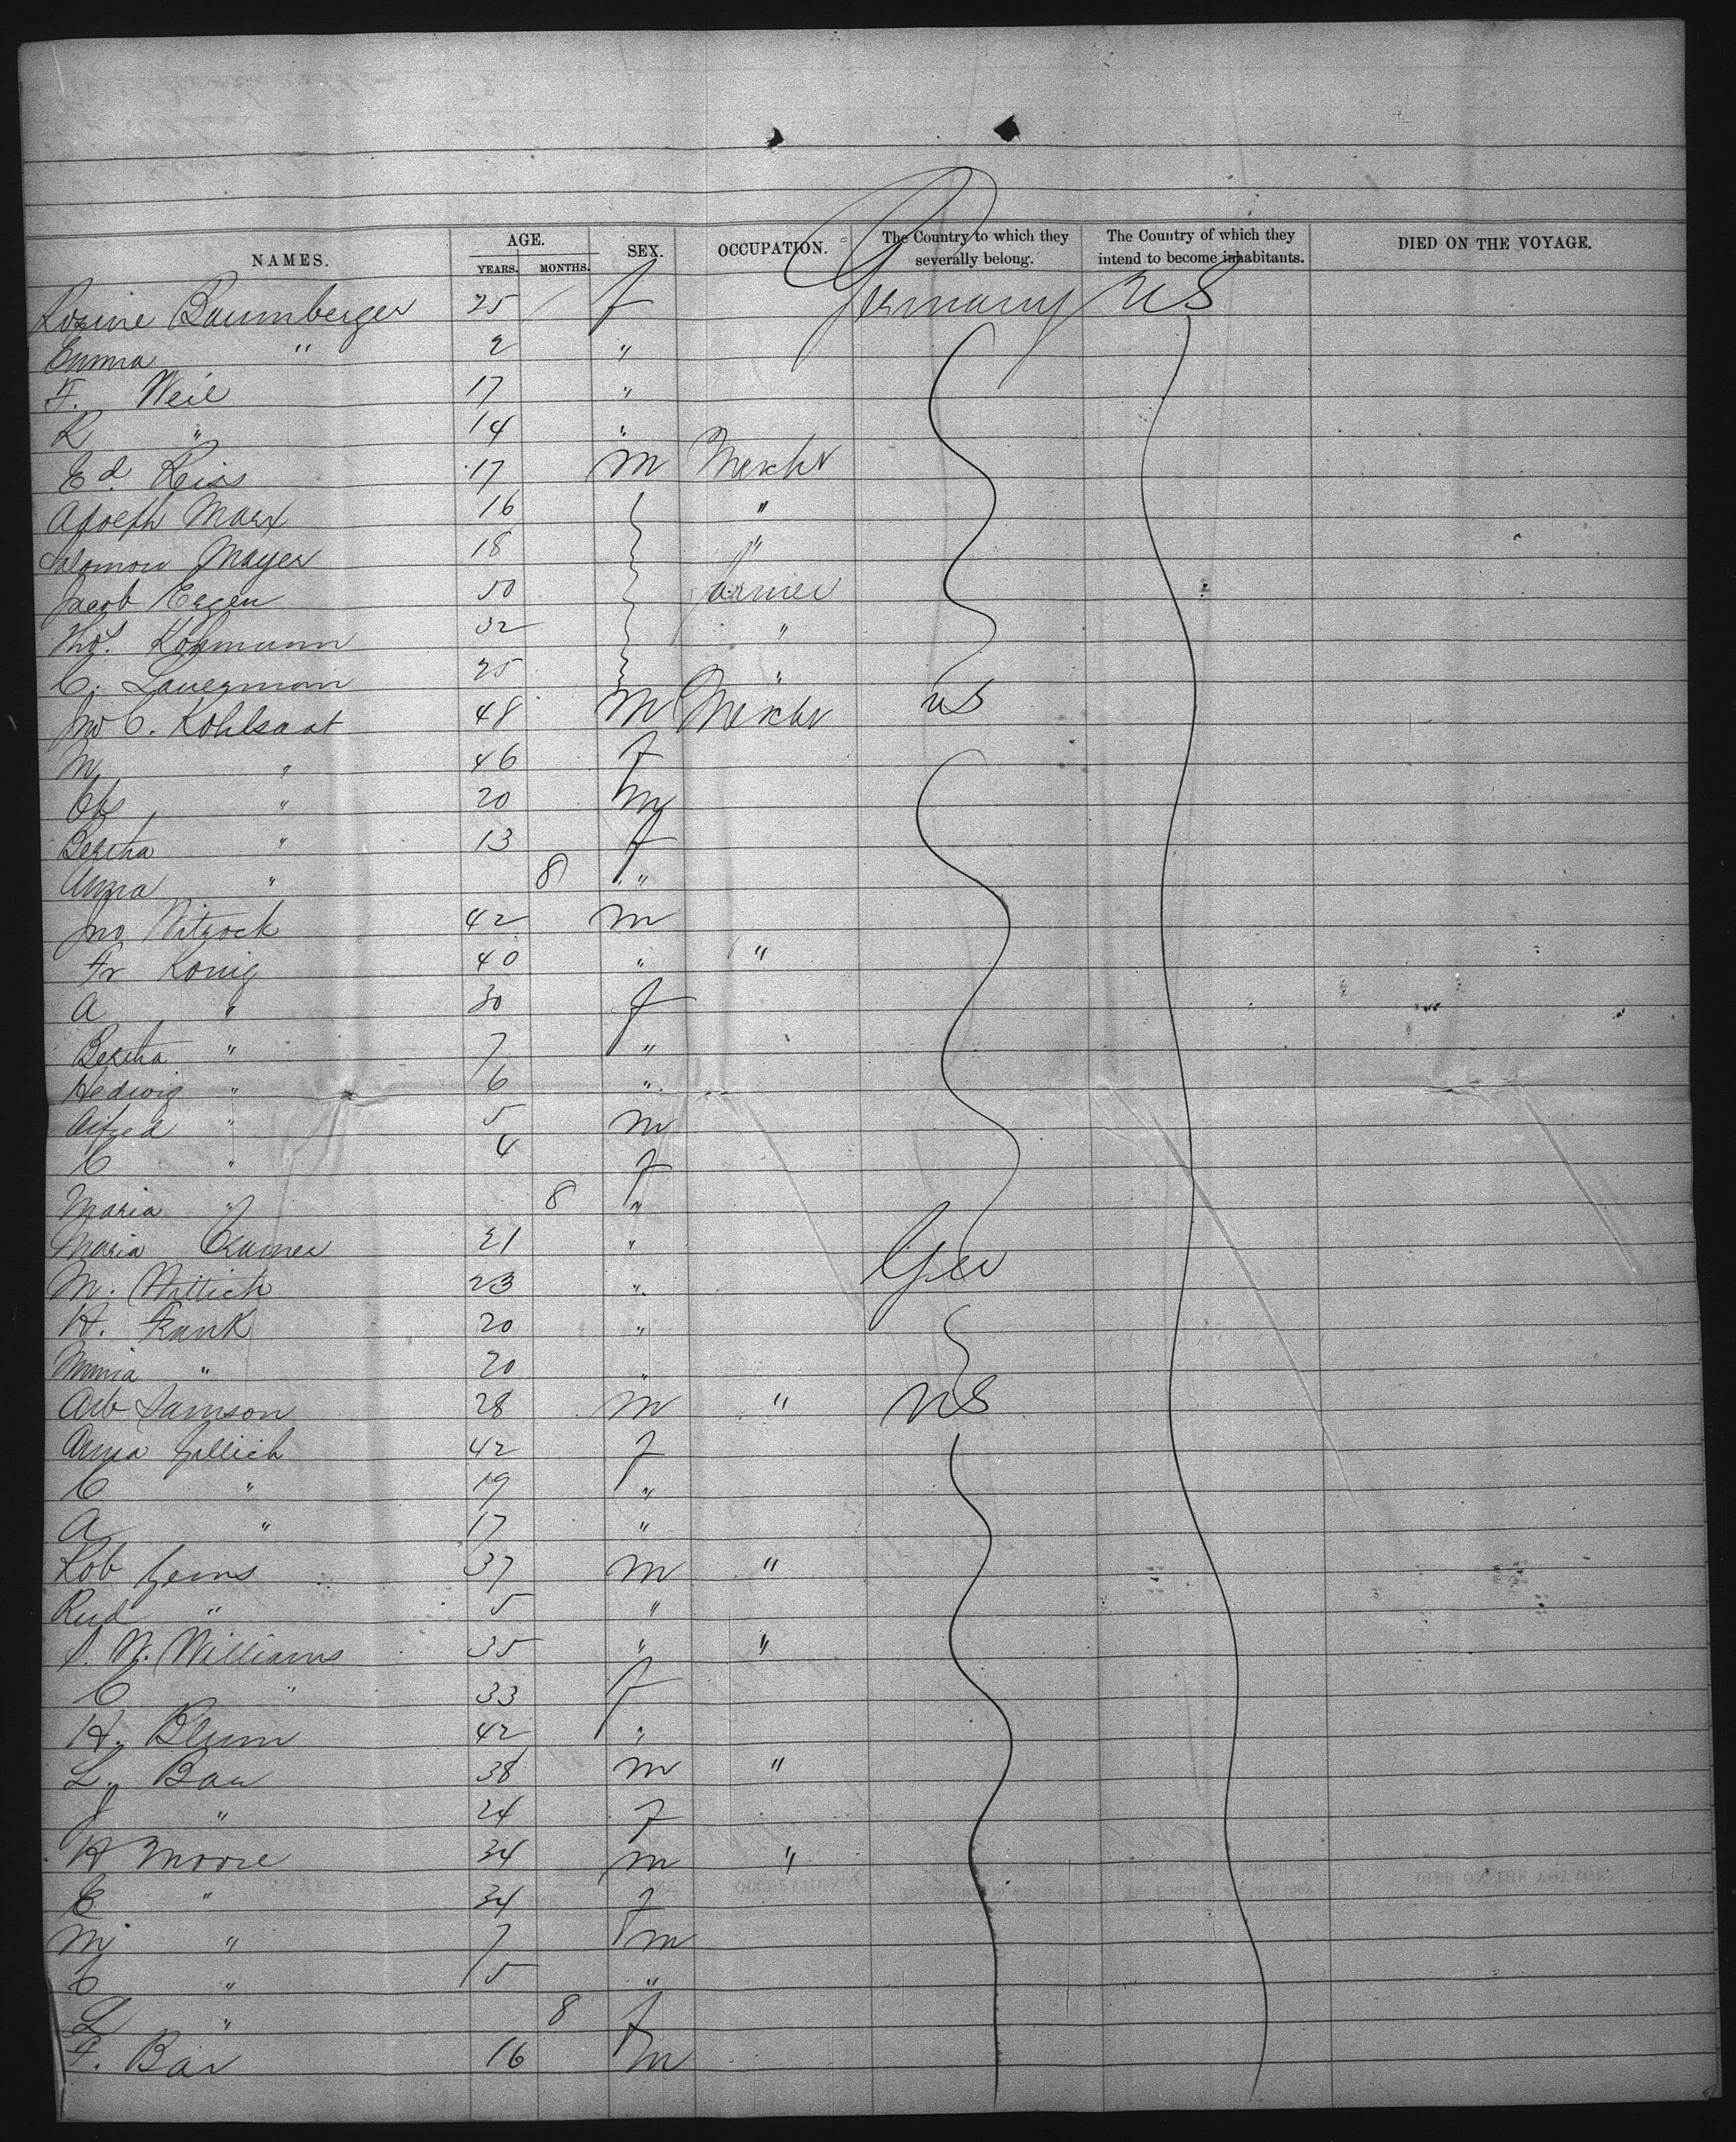 NAMES. AGE. YEARS. MONTHS. SEX. OCCUPATION. The Country to which they severally belong. The Country of which they intend to become inhabitants. DIED ON THE VOYAGE.
Rosine Baumberger 25 / f Germany US
Emma " 2 "
F. Weil 17 "
R " 14 "
Ed. Reiss 17 m Mercht
Adolph Marx 16 "
Salomon Mayer 18 "
Jacob Eggen 50 farmer
Thos. Kohmann 32 "
C. Lauermann 25 "
Jno C. Kohlsaat 48 m Mercht US
M " 46 f
Ch " 20 m
Bertha " 13 f
Anna " 8 "
Jno Witzock 42 m
Fr Konig 40 " "
A " 30 f
Bertha " 7 "
Hedwig " 6 "
Alfred " 5 m
C " 4 f
Maria " 8 "
Maria Cramer 21 " Ger
M. Wittich 23 "
H. Frank 20 "
Minna " 20 "
Alb Samson 28 m " US
Anna Zillich 42 f
C " 19 "
A " 17 "
Rob Zeins 37 m "
Rud " 5 "
S. W. Williams 35 " "
C " 33 f
H. Blum 42 "
L. Bau 38 m "
J " 24 f
H Moore 34 m "
E " 34 f
M " 7 m
C " 5 "
L " 8 f
F. Bär 16 m